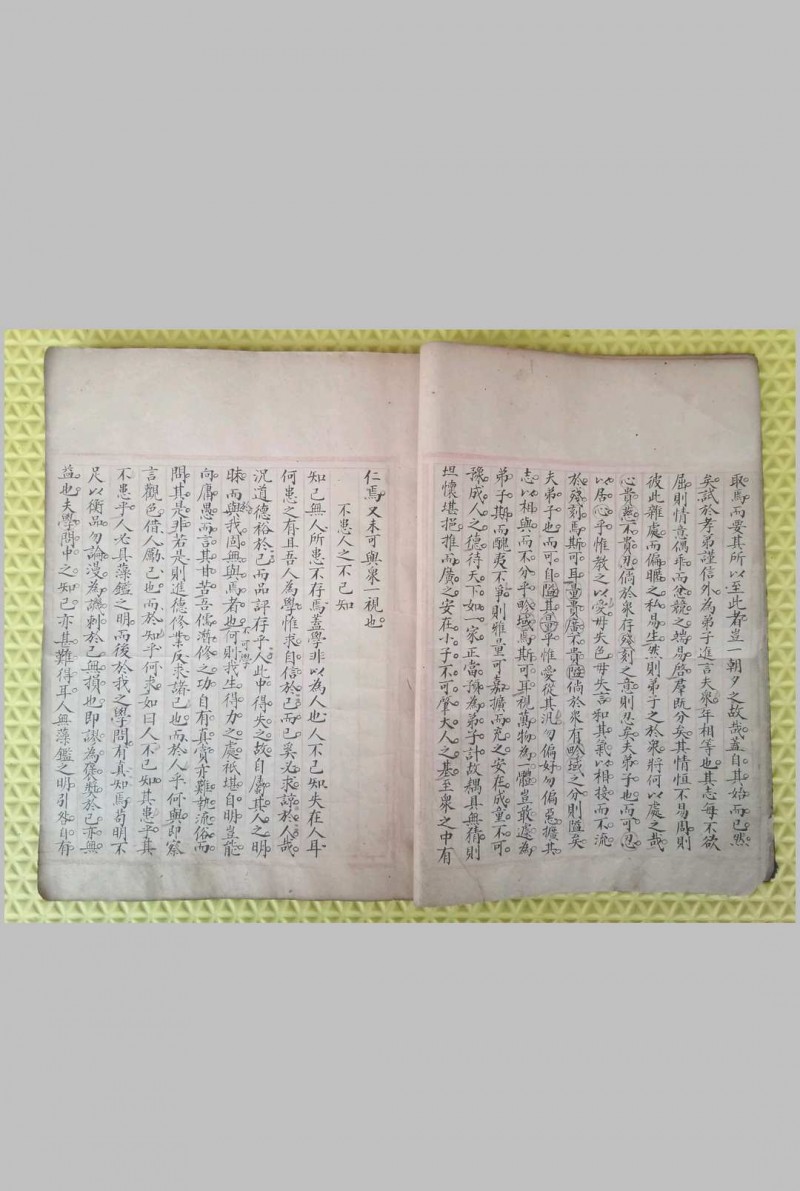 取焉而要其所以至此者豈一朝夕之故哉蓋自其始而已然
矣試於孝弟謹信外為弟子進言夫衆年相等也其志每不欲
屈則情意偶乖而忿競之端易啓羣既分矣其情恒不易周則
彼此雜處而偏暱之私易生然則弟子之於衆將何以處之哉
心貴慈不貴忍倘於衆存殘刻之意則忍矣夫弟子也而可忍
以居心乎惟教之以愛毋失色毋失言和其氣以相接而不流
於殘刻焉斯可耳量貴廣不貴隘倘於衆有畛域之分則隘矣
夫弟子也而可自隘其量乎惟愛從其汎勿偏好勿偏惡擴其
志以相與而不分乎畛域焉斯可耳視萬物為一體豈敢遽為
弟子期而醜夷不爭則雅量可嘉擴而充之安在成童不可
豫成人之德待天下如一家正當預為弟子計故耦具無猜則
坦懷堪挹推而廣之安在小子不可肇大人之基至衆之中有
仁焉又未可與衆一視也
不患人之不己知
知己無人所患不存焉蓋學非以為人也人不己知失在人耳
何患之有且吾人為學惟求自信於己而已奚必求諒於人哉
況道德裕於己而品評存乎人此中得失之故自儕其人之明
昧而與我固無與焉者也何則我生得力之處祇堪自明豈能不可學
向庸愚而言其甘苦吾儒潛修之功自有真賞亦難執流俗而
問其是非若是則進德修業反求諸己也而於人乎何與即察
言觀色借人勵己也而於知乎何求如曰人不己知其患乎其
不患乎人必具藻鑑之明而後於我之學問有真知焉苟明不
足以衡品勿論漫為譏刺於己無損也即謬為褒獎於己亦無
益也夫學問中之知己亦甚難得耳人無藻鑑之明引咎自有